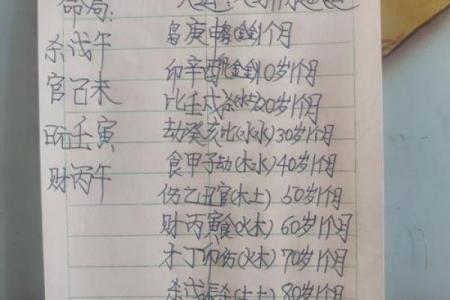 命局:
杀戊午
官己未
日元壬寅
财丙午
枭庚申枭(金金)1个月
印辛酉印(金金)10岁1个月
比壬戌杀(水土)20岁1个月
劫癸亥比(水水)30岁1个月
食甲子劫(木水)40岁1个月
伤乙丑官(木土)50岁1个月
财丙寅食(火木)60岁1个月
才丁卯伤(火木)70岁1个月
杀戊辰杀(土土)80岁1个月